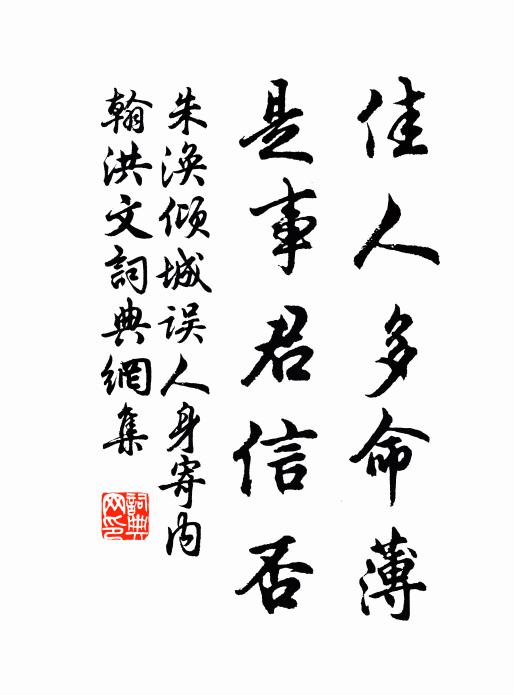 佳人多命薄
是事君信否
朱渙傾城誤人身寄內
翰洪文詞典網集
詞典
网印